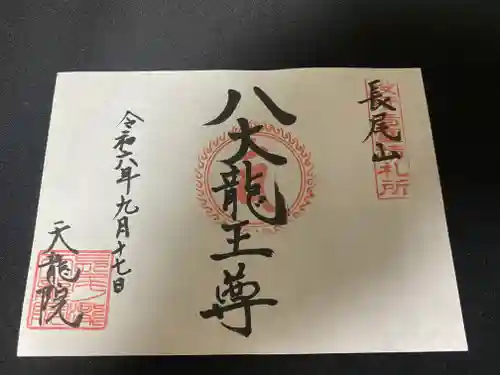 長尾山
八大龍王尊
令和六年九月十七日
天龍院
札所